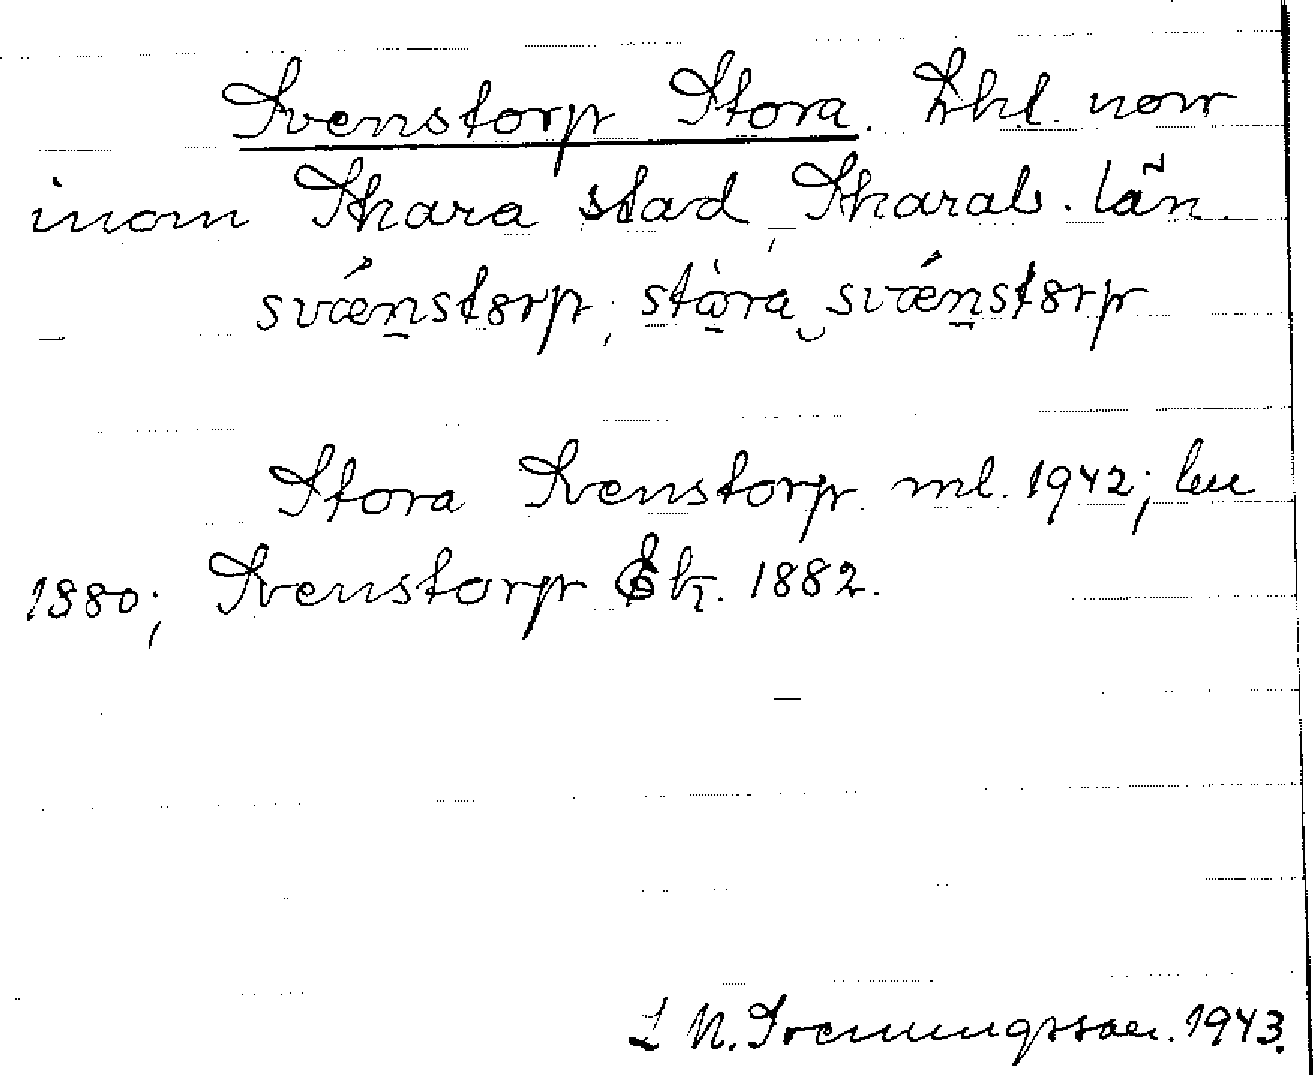 Svenstorp Stora. Lhl. norr
inom Skara stad, Skarab. län.
svǽn̲storp; stò̲ra‿svǽn̲storp
Stora Svenstorp ml. 1942; leu
1880; Svenstorp Ek. 1882.
L N. Svenungsson. 1943.